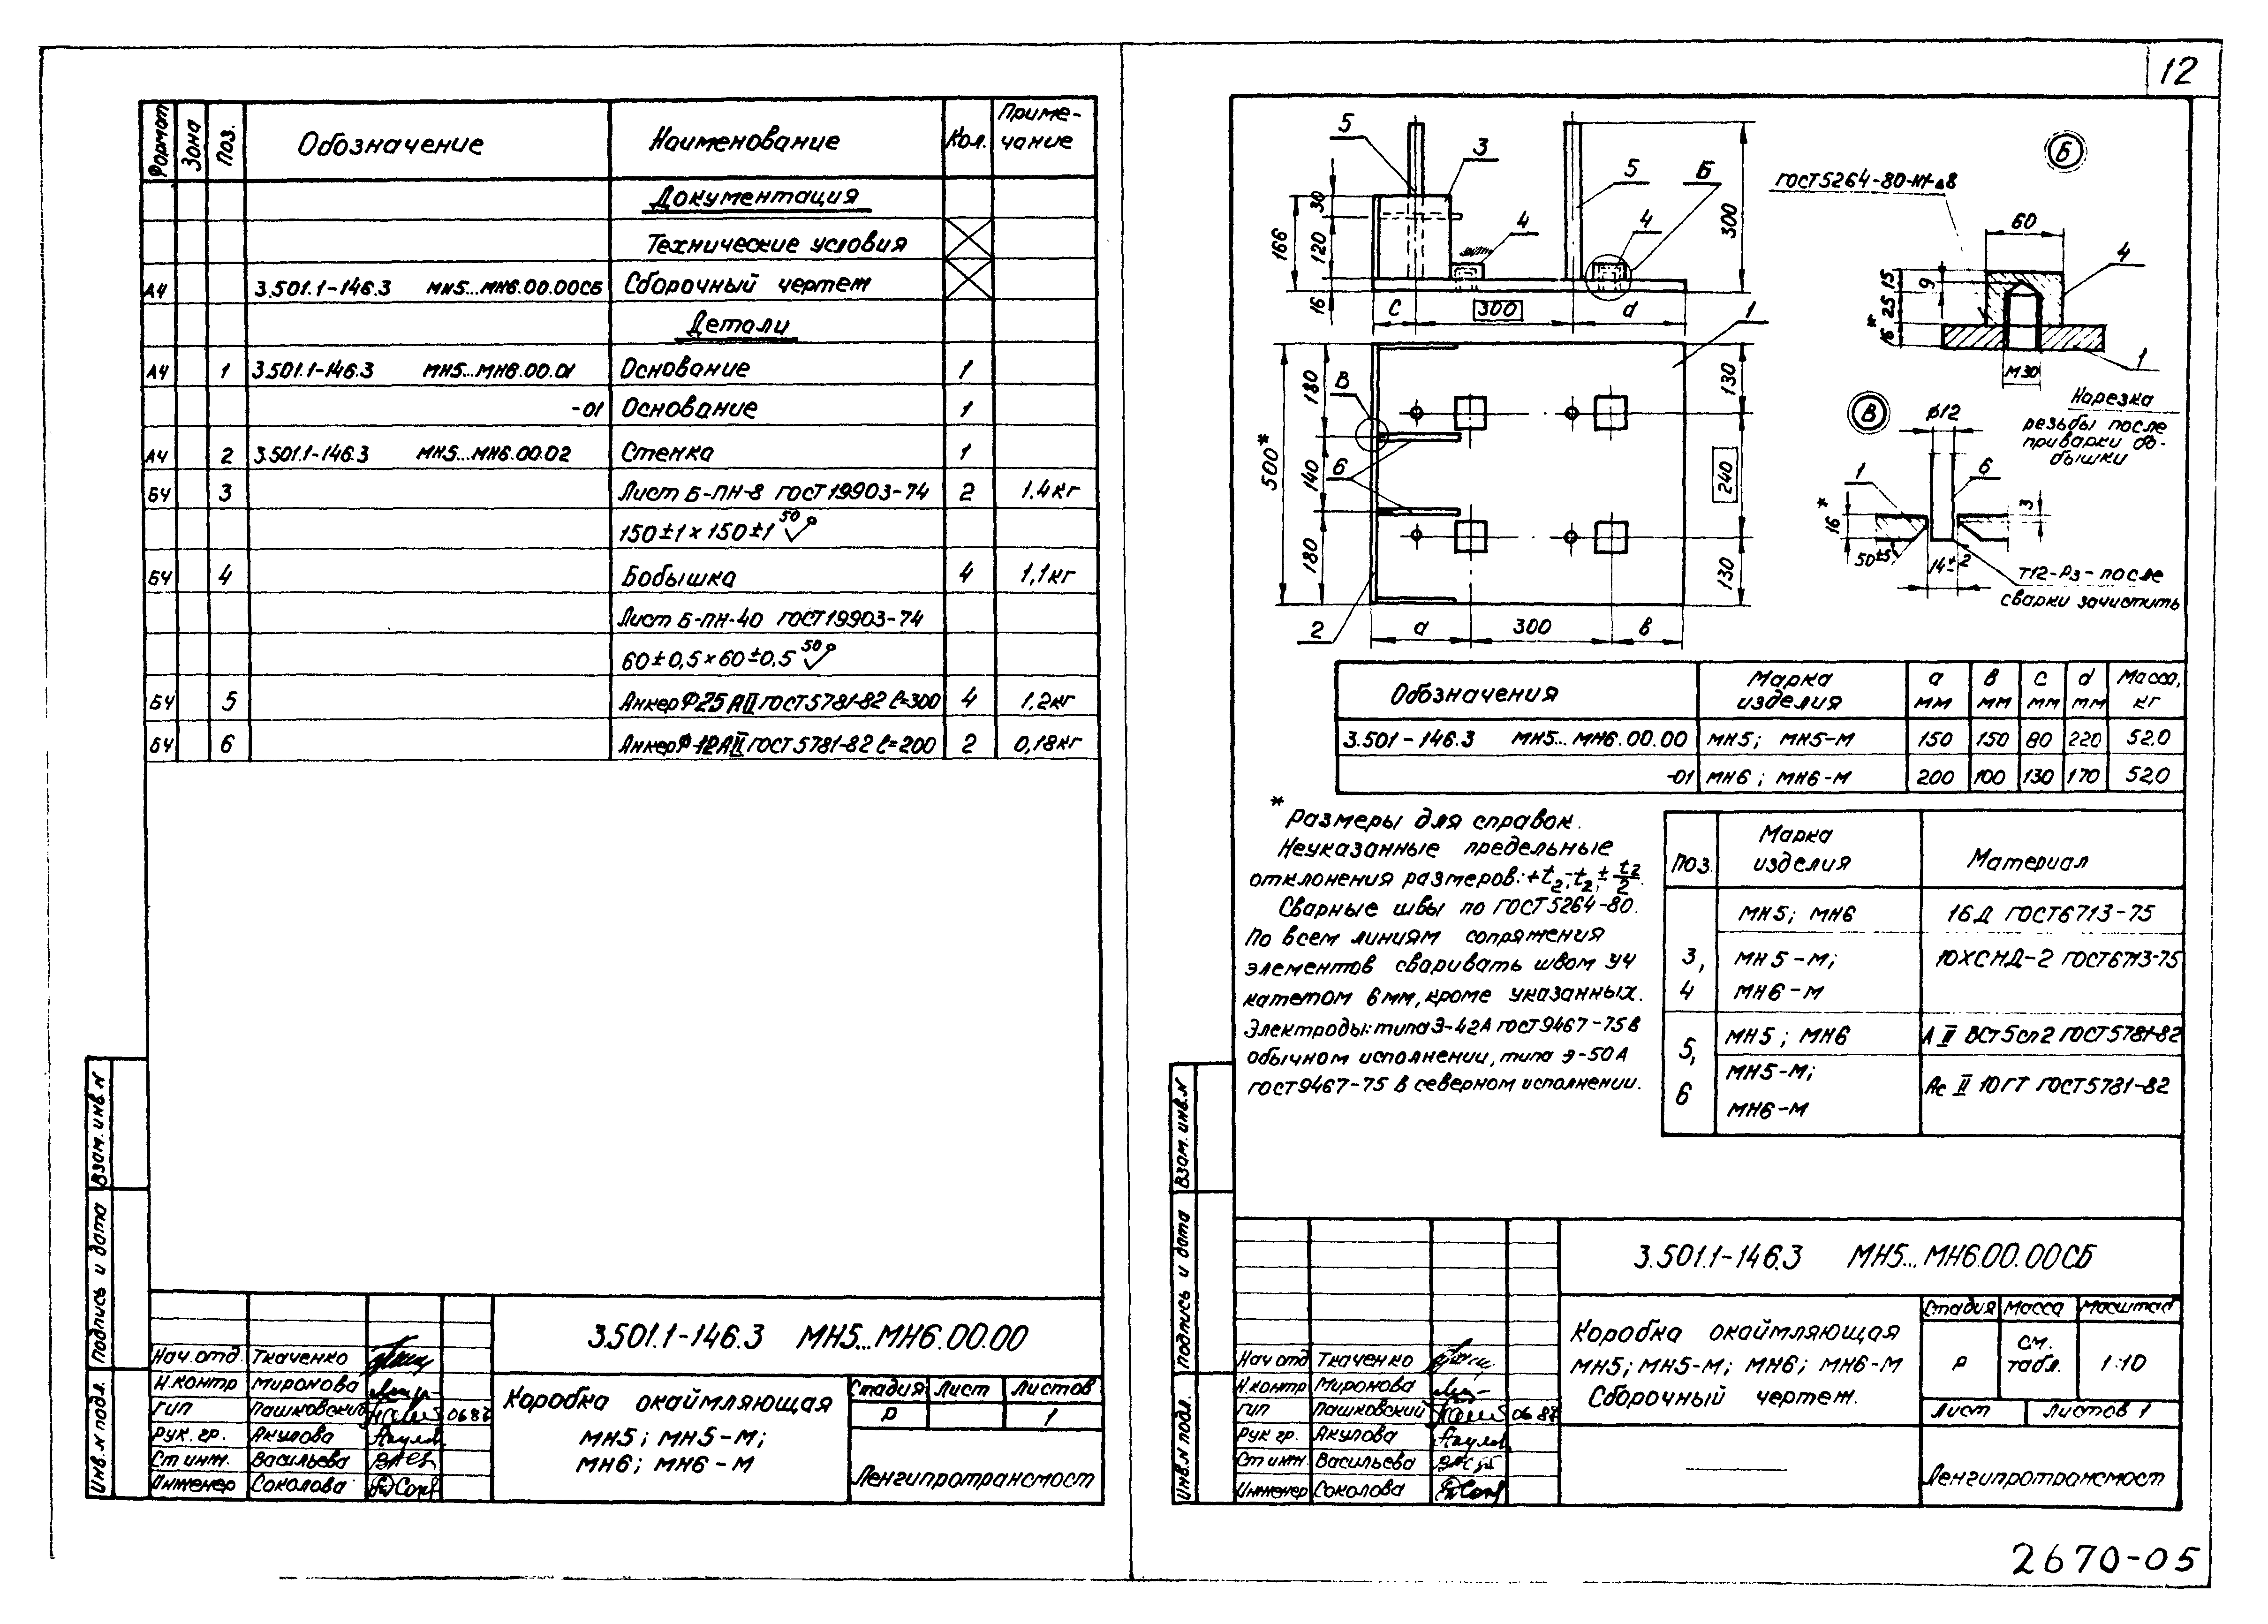 12
Формат Зона Поз. Обозначение Наименование Кол. Приме-
чание
Документация
Технические условия
А4 3.501.1-146.3 МН5...МН6.00.00СБ Сборочный чертеж
Детали
А4 1 3.501.1-146.3 МН5...МН6.00.01 Основание 1
-01 Основание 1
А4 2 3.501.1-146.3 МН5...МН6.00.02 Стенка 1
БЧ 3 Лист Б-ПН-8 ГОСТ 19903-74 2 1,4кг
150±1×150±1 50
БЧ 4 Бобышка 4 1,1кг
Лист Б-ПН-40 ГОСТ 19903-74
60±0,5×60±0,5 50
БЧ 5 Анкер Ф25 АII ГОСТ 5781-82 ℓ=300 4 1,2кг
БЧ 6 Анкер Ф12АII ГОСТ 5781-82 ℓ=200 2 0,18кг
Взам. инв. N
Подпись и дата
Инв. N подл.
3.501.1-146.3 МН5...МН6.00.00
Нач.отд. Ткаченко
Н.контр Миронова
ГИП Пашковский 06.87
Рук. гр. Якулова
Ст инж. Васильева
Инженер Соколова
Коробка окаймляющая
МН5; МН5-М;
МН6; МН6-М
Стадия Лист Листов
Р 1
Ленгипротрансмост
5 3 5 Б 4 4
30 166 120 16 300
С 300 d 1
500* 180 140 180
В 6 2
130 240 130
а 300 в
Б
ГОСТ 5264-80-Н1-⊿8
60 4
9 15 25 16*
М30 1
Нарезка
резьбы после
приварки бо-
бышки
В
Ø12
1 6
16* 3
50±5 14±2
Т12-Рз-после
сварки зачистить
Обозначения Марка изделия а мм в мм с мм d мм Масса, кг
3.501-146.3 МН5...МН6.00.00 МН5; МН5-М 150 150 80 220 52.0
-01 МН6; МН6-М 200 100 130 170 52,0
* Размеры для справок.
Неуказанные предельные
отклонения размеров: +t2; -t2; ± t2/2.
Сварные швы по ГОСТ 5264-80.
По всем линиям сопряжения
элементов сваривать швом У4
катетом 6мм, кроме указанных.
Электроды: типа Э-42А ГОСТ 9467-75 в
обычном исполнении, типа Э-50А
ГОСТ 9467-75 в северном исполнении.
Поз. Марка изделия Материал
3, 4 МН5; МН6 16Д ГОСТ 6713-75
МН5-М; МН6-М 10ХСНД-2 ГОСТ 6713-75
5, 6 МН5; МН6 А II ВСт5сп2 ГОСТ 5781-82
МН5-М; МН6-М Ас II 10ГТ ГОСТ 5781-82
Взам. инв. N
Подпись и дата
Инв. N подл.
3.501.1-146.3 МН5...МН6.00.00СБ
Нач отд Ткаченко
Н.контр Миронова
ГИП Пашковский 06 87
Рук гр. Якулова
Ст инж Васильева
Инженер Соколова
Коробка окаймляющая
МН5; МН5-М; МН6; МН6-М
Сборочный чертеж.
Стадия Масса Масштаб
Р см. табл. 1:10
Лист Листов 1
Ленгипротрансмост
2670-05